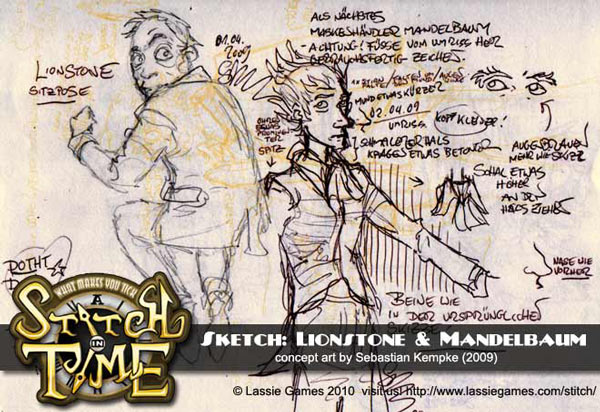 LIONSTONE
SITZPOSE
01.04.
2009
ALS NÄCHSTES
MASKENHÄNDLER MANDELBAUM
- ACHTUNG! FÜSSE VOM UMRISS HER
GEBRAUCHSFERTIG ZEICHEN.
MUND ETWAS KÜRZER
02.04.09
UMRISS
KOPF KLEINER!
SCHMALER ALS
KRAGEN ETWAS BETONEN
OHREN
ETWAS
SPITZ
AUGENBRAUEN
MEHR WIE
SCHAL ETWAS
HÖHER
AN DEN
HALS ZIEHEN
NASE WIE
VORHER
BEINE WIE
IN DER URSPRÜNGLICHEN
SKIZZE
DOTHT
WHAT MAKES YOU TICK
A
STITCH
IN
TIME
SKETCH: LIONSTONE & MANDELBAUM
concept art by Sebastian Kempke (2009)
© Lassie Games 2010 visit us! http://www.lassiegames.com/stitch/